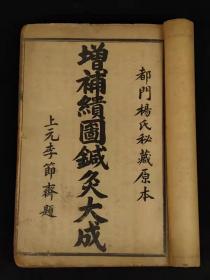 都門楊氏秘藏原本
增補繢圖鍼灸大成
上元李節齋題